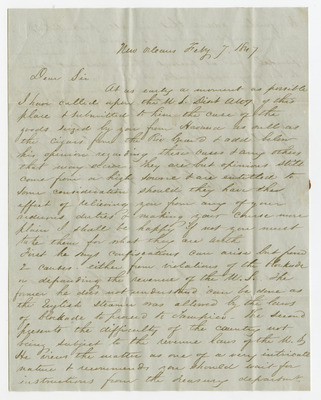 New Orleans Feby 7 1847
Dear Sir
At as early a moment as possible
I have called upon the U. S. Dist Atty of this
place & submitted to him the case of the
goods seized by you from Havana as well as
the cigars from the & add below
his opinion regarding these cases & any others
that may arise. They are but opinions still
come from a high source & are entitled to
some consideration should they have the
effect of relieving you from any of your
arduous duties & making your course more
plain I shall be happy if not you must
take them for what they are worth.
First he says confiscations can arise but from
2 causes either from violations of the blockade
or defrauding the revenues of the U. S. The
former he does not understand can be done as
the English steamer was allowed by the laws
of blockade to proceed to Tampico. The second
presents the difficulty of the country not
being subject to the revenue laws of the U. S.
He views the matter as one of a very intricate
nature & recommends you should wait for
instructions from the treasury department